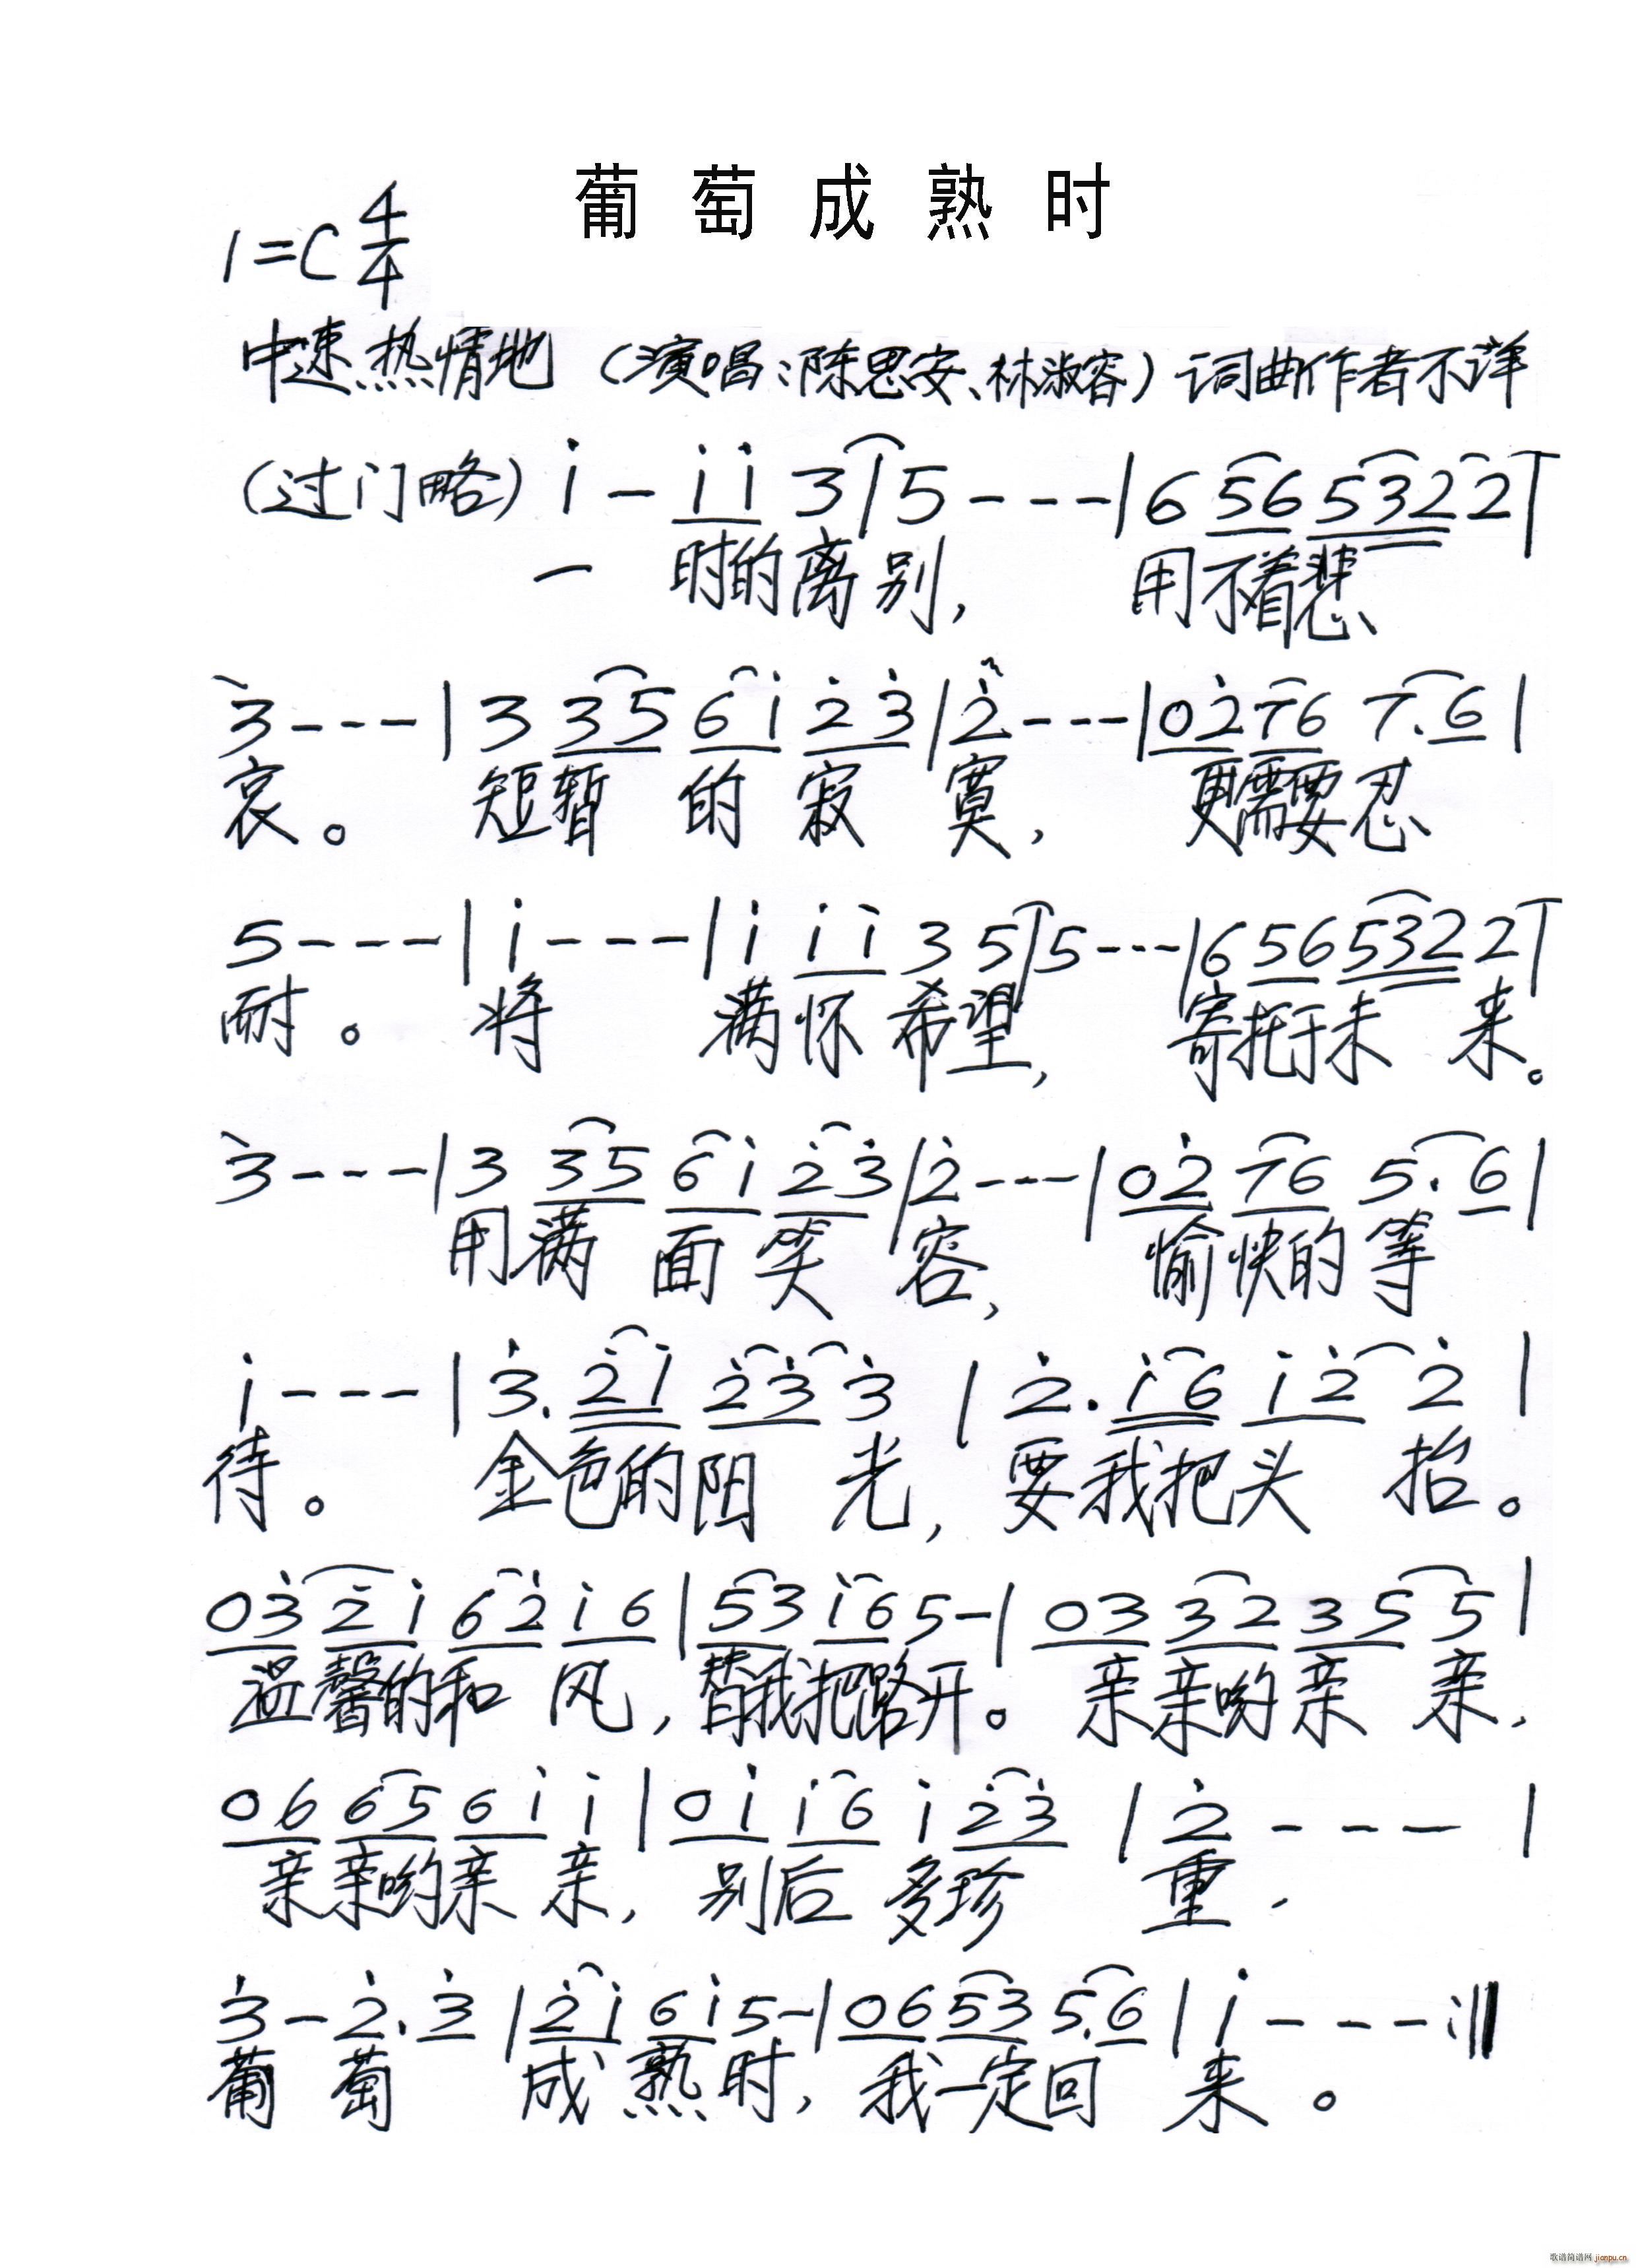 葡萄成熟时
1=C 4/4
中速.热情地 (演唱:陈思安、林淑容) 词曲作者不详
(过门略) i - i i 3 | 5 - - - | 6 5 6 5 3 2 2 |
一 时的离 别, 用不着悲
3 - - - | 3 3 5 6 i 2 3 | 2 - - - | 0 2 7 6 7. 6 |
哀。 短暂 的 寂 寞, 更需要忍
5 - - - | i - - - | i i i 3 5 | 5 - - - | 6 5 6 5 3 2 2 |
耐。 将 满怀希望, 寄托于未 来。
3 - - - | 3 3 5 6 i 2 3 | 2 - - - | 0 2 7 6 5. 6 |
用满 面 笑 容, 愉快的等
i - - - | 3. 2 i 2 3 3 | 2. i 6 i 2 2 |
待。 金色的阳 光, 要我把头 抬。
0 3 2 i 6 2 i 6 | 5 3 i 6 5 - | 0 3 3 2 3 5 5 |
温馨的和 风, 替我把路开。 亲亲哟亲 亲,
0 6 6 5 6 i i | 0 i i 6 i 2 3 | 2 - - - |
亲亲哟亲 亲, 别后 多珍 重,
3 - 2. 3 | 2 i 6 i 5 - | 0 6 5 3 5. 6 | i - - - :||
葡 萄 成 熟 时, 我一定回 来。
歌谱简谱网 jianpu.cn